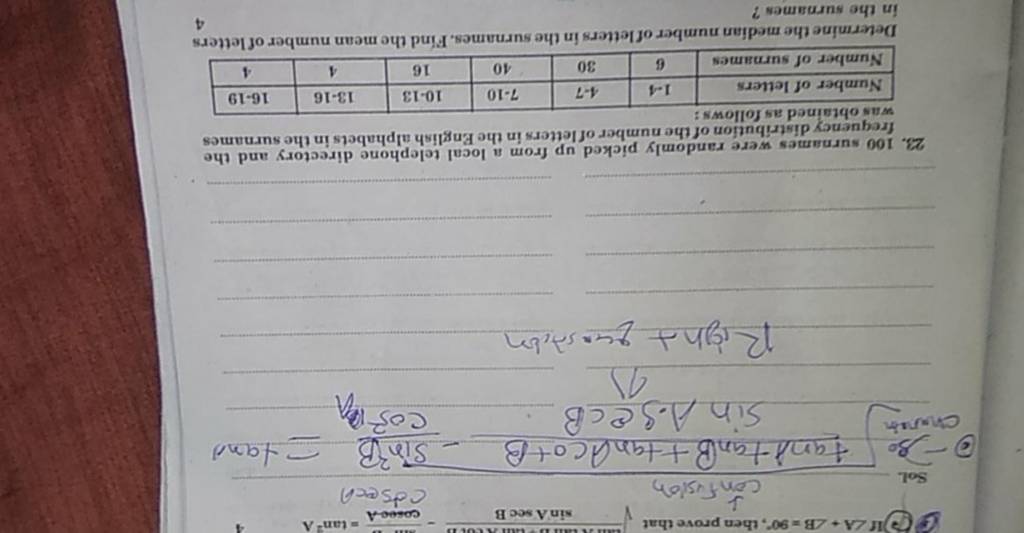 If ∠A + ∠B = 90°, then prove that
sin A sec B
cosec A
= tan² A
4
confusion
cosec A
Sol.
tanA tanB + tanA cotB
- sin²B
= tan
sin A·secB
cos²
Right question
23. 100 surnames were randomly picked up from a local telephone directory and the
frequency distribution of the number of letters in the English alphabets in the surnames
was obtained as follows :
Number of letters 1-4 4-7 7-10 10-13 13-16 16-19
Number of surnames 6 30 40 16 4 4
Determine the median number of letters in the surnames. Find the mean number of letters
in the surnames ?
4